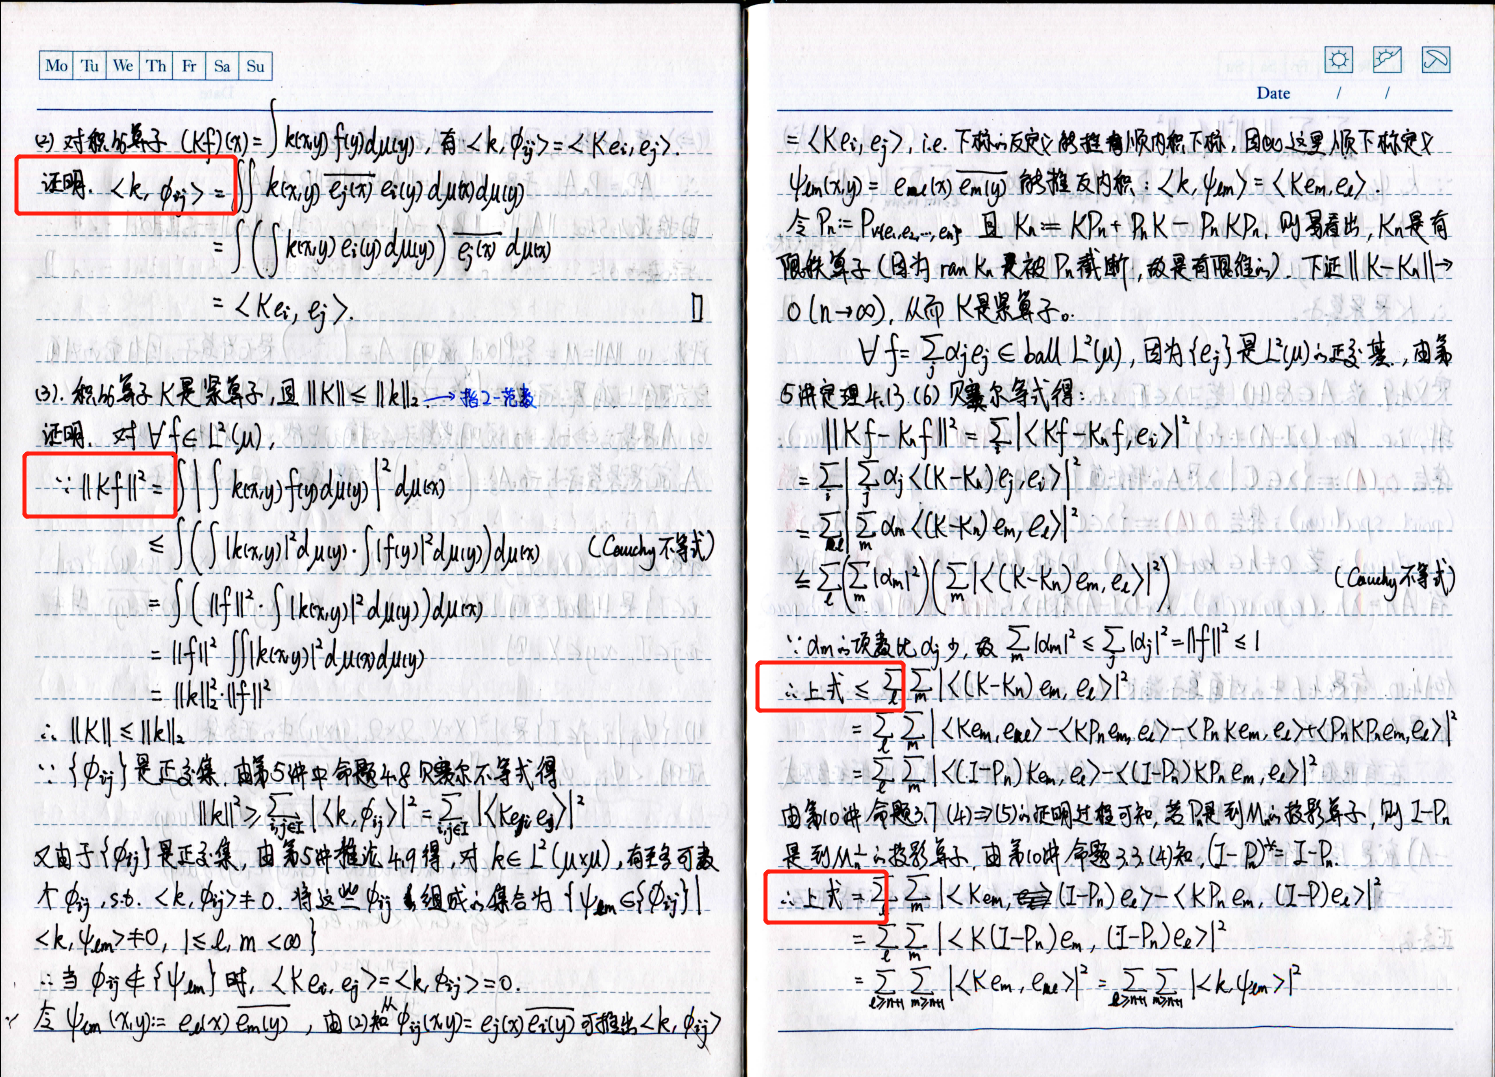 Mo Tu We Th Fr Sa Su
(2) 对积分算子 (Kf)(x) = ∫ k(x,y) f(y) dμ(y), 有 <k, ϕij> = <Kei, ej>.
证明. <k, ϕij> = ∬ k(x,y) \overline{ej(x)} ei(y) dμ(x) dμ(y)
= ∫ ( ∫ k(x,y) ei(y) dμ(y) ) \overline{ej(x)} dμ(x)
= <Kei, ej>. □
(3). 积分算子 K 是紧算子, 且 ||K|| ≤ ||k||₂. → 指2-范数
证明. 对 ∀f ∈ L²(μ),
∵ ||Kf||² = ∫ | ∫ k(x,y) f(y) dμ(y) |² dμ(x)
≤ ∫ ( ∫ |k(x,y)|² dμ(y) · ∫ |f(y)|² dμ(y) ) dμ(x) (Cauchy 不等式)
= ∫ ( ||f||² · ∫ |k(x,y)|² dμ(y) ) dμ(x)
= ||f||² ∬ |k(x,y)|² dμ(x) dμ(y)
= ||k||₂² · ||f||²
∴ ||K|| ≤ ||k||₂
∵ {ϕij} 是正交集, 由第5讲中命题4.8 贝赛尔不等式得
||k||² ≥ Σ_{i,j∈I} |<k, ϕij>|² = Σ_{i,j∈I} |<Kei, ej>|²
又由于 {ϕij} 是正交集, 由第5讲推论4.9得, 对 k ∈ L²(μ×μ), 有至多可数
个 ϕij, s.t. <k, ϕij> ≠ 0. 将这些 ϕij 组成的集合为 {ψlm ∈ {ϕij} |
<k, ψlm> ≠ 0, 1 ≤ l, m < ∞}
∴ 当 ϕij ∉ {ψlm} 时, <Kei, ej> = <k, ϕij> = 0.
令 ψlm(x,y) := el(x) \overline{em(y)}, 由(2)知 从 ϕij(x,y) = ej(x) \overline{ei(y)} 可推出 <k, ϕij>
Date / /
= <Kei, ej>, i.e. 下标的反定义能推出顺内积下标, 因此这里顺下标定义
ψlm(x,y) = el(x) \overline{em(y)} 能推反内积: <k, ψlm> = <Kem, el>.
令 Pn := P_{∨{e1, e2, …, en}} 且 Kn = KPn + PnK − PnKPn, 则易看出, Kn是有
限秩算子 (因为 ran Kn 是被 Pn 截断, 故是有限维的). 下证 ||K−Kn|| →
0 (n→∞), 从而 K是紧算子.
∀ f = Σ_j αj ej ∈ ball L²(μ), 因为 {ej} 是 L²(μ) 的正交基, 由第
5讲定理4.13 (6) 贝赛尔等式得:
||Kf − Knf||² = Σ_i |<Kf − Knf, ei>|²
= Σ_i | Σ_j αj <(K−Kn) ej, ei> |²
= Σ_l | Σ_m αm <(K−Kn) em, el> |²
≤ Σ_l ( Σ_m |αm|² ) ( Σ_m |<(K−Kn) em, el>|² ) (Cauchy 不等式)
∵ αm 的项数比 αj 少, 故 Σ_m |αm|² ≤ Σ_j |αj|² = ||f||² ≤ 1
∴ 上式 ≤ Σ_l Σ_m |<(K−Kn) em, el>|²
= Σ_l Σ_m |<Kem, el> − <KPnem, el> − <PnKem, el> + <PnKPnem, el>|²
= Σ_l Σ_m |<(I−Pn)Kem, el> − <(I−Pn)KPnem, el>|²
由第10讲命题3.7 (4)⇒(5)的证明过程可知, 若 Pn是到Mn的投影算子, 则 I−Pn
是到 Mn^⊥ 的投影算子. 由第10讲命题3.3 (4)知, (I−Pn)* = I−Pn.
∴ 上式 = Σ_l Σ_m |<Kem, (I−Pn) el> − <KPnem, (I−P) el>|²
= Σ_l Σ_m |<K(I−Pn) em, (I−Pn) el>|²
= Σ_{l≥n+1} Σ_{m≥n+1} |<Kem, el>|² = Σ_{l≥n+1} Σ_{m≥n+1} |<k, ψlm>|²